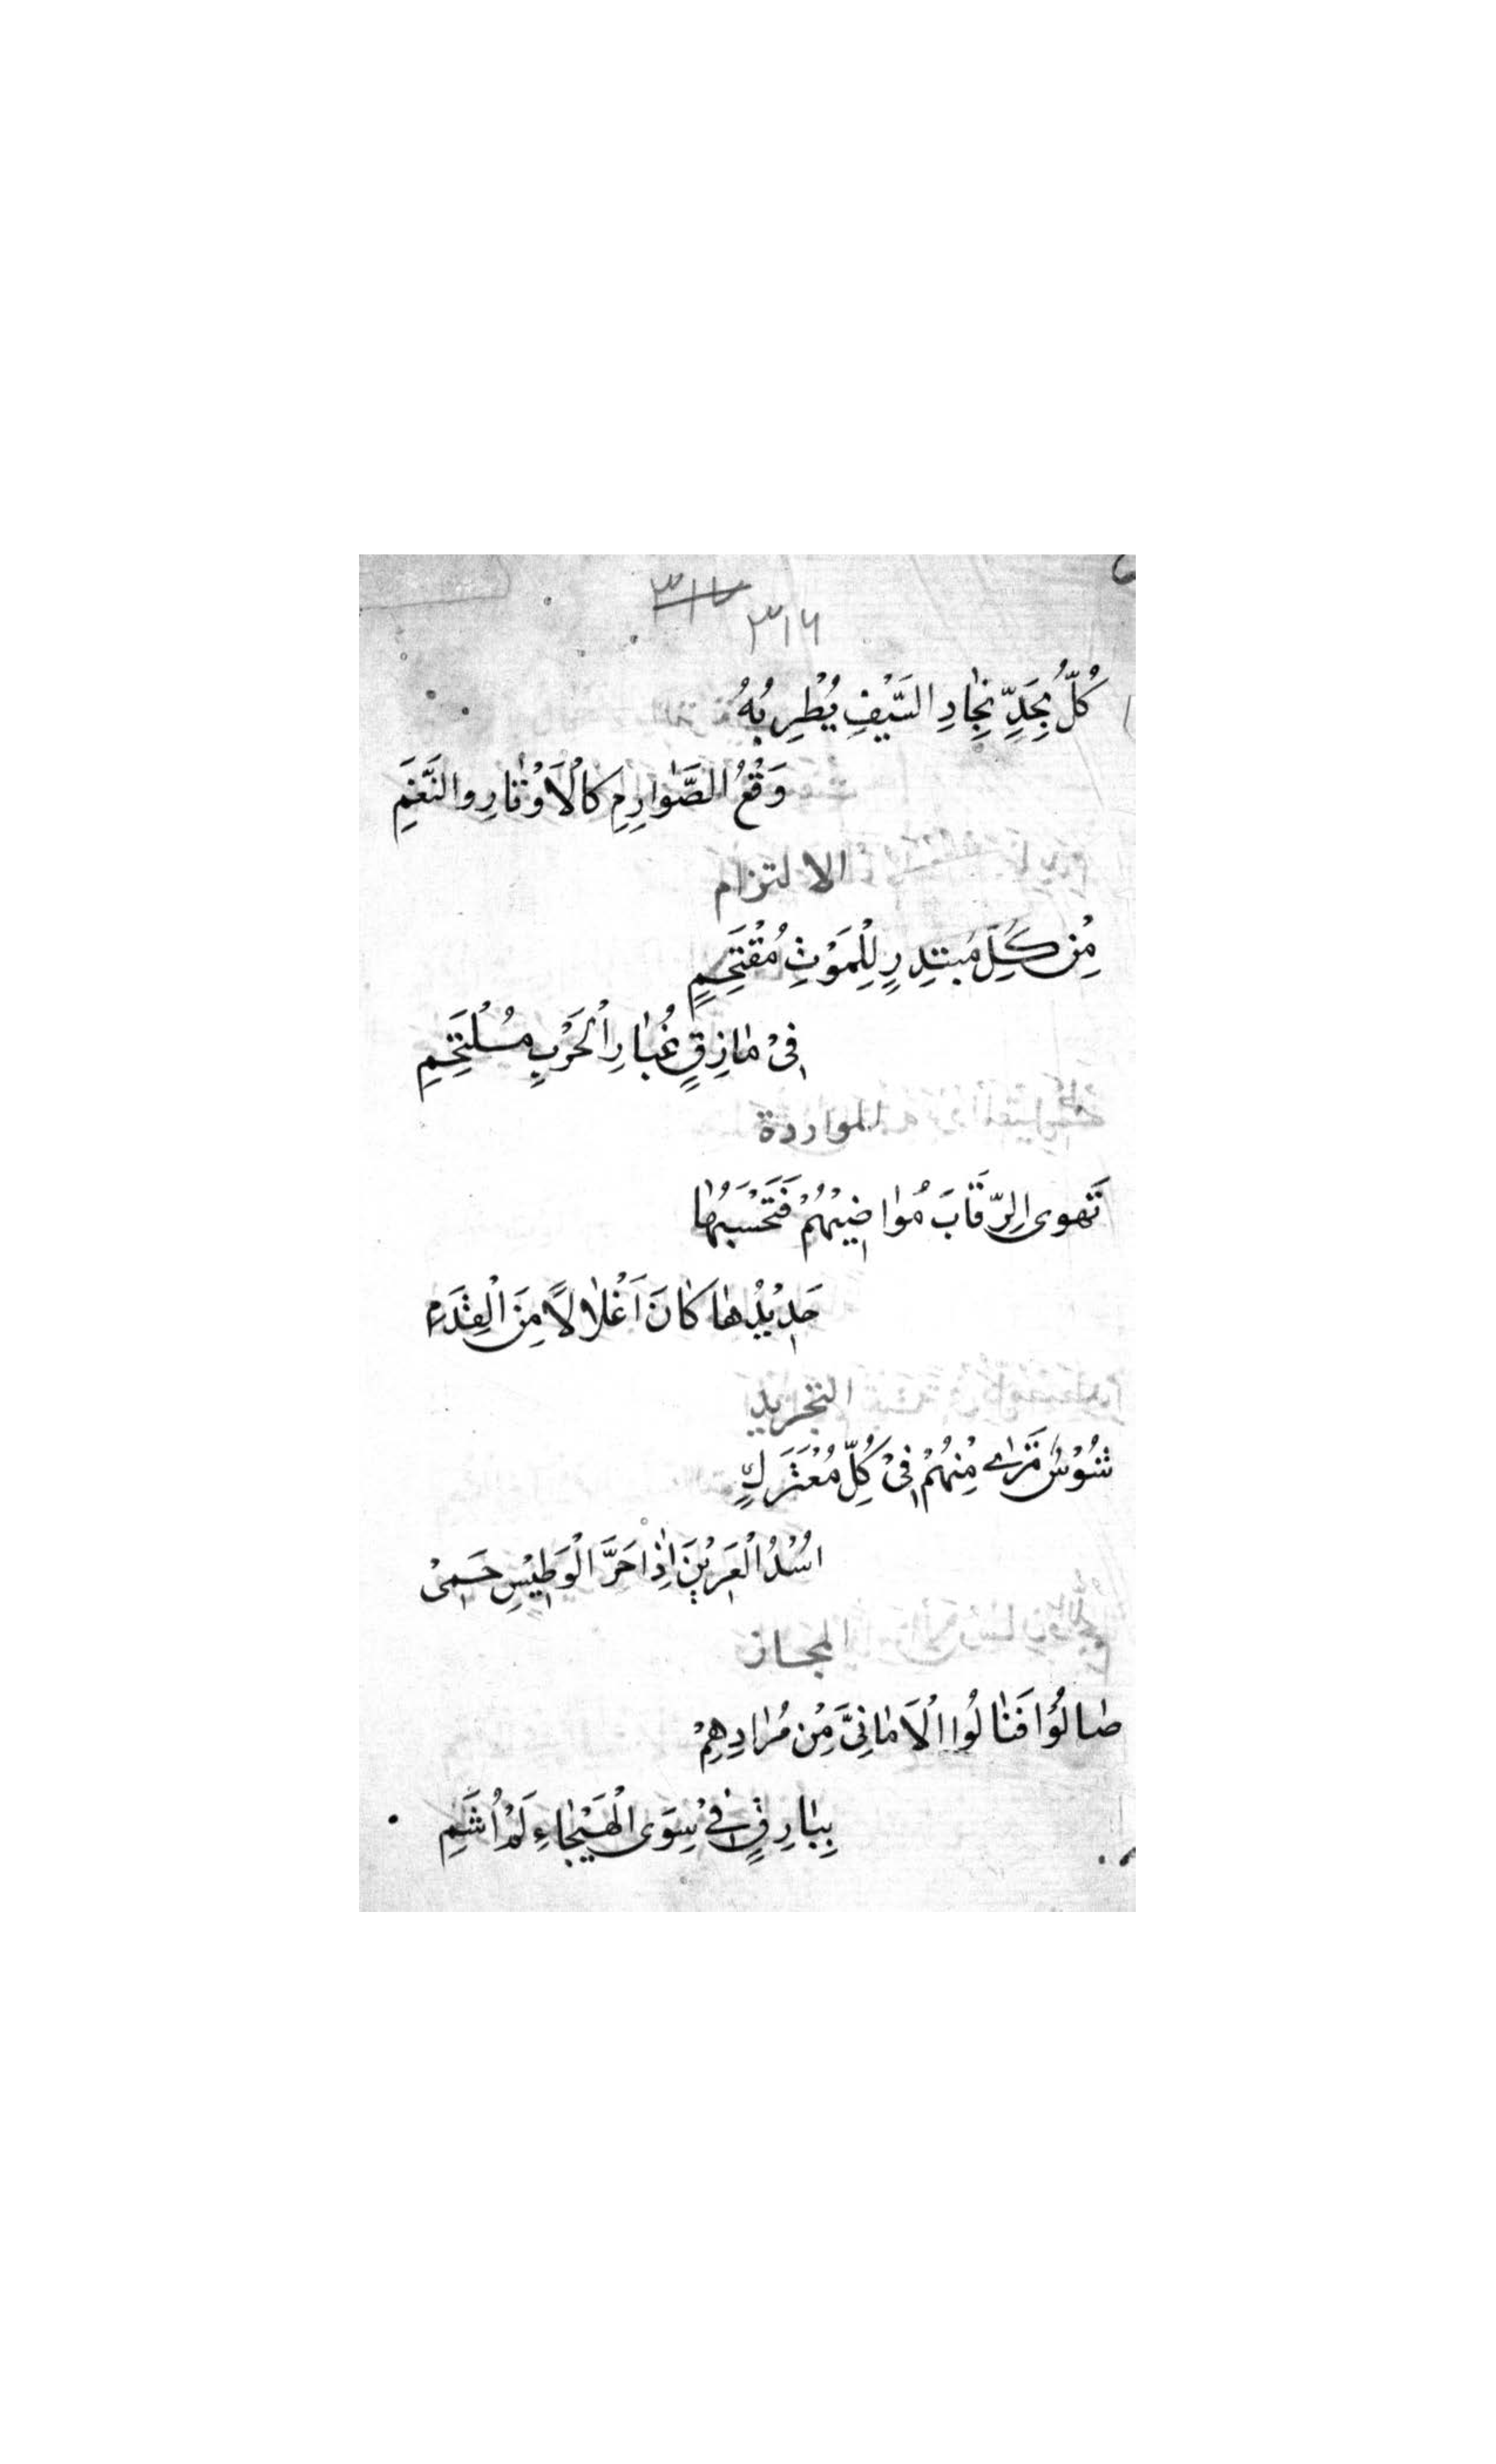 ٣١٧
٣١٦
كُلُّ بِجَدِّ نِجَادِ السَّيْفِ يُطْرِبُهُ
وَقْعُ الصَّوَارِمِ كَالْاَوْتَارِ والنَّغَمِ
الالتزام
مِنْ كُلِّ مُبتَدِرٍ لِلْمَوْتِ مُقْتَحِمٍ
فِيْ مَازِقٍ غُبَارِ الْحَرْبِ مُلْتَحِمِ
المواردة
تَهوى الرّقَابَ مُواضِيْهُمْ فَتَحْسَبُهَا
حَدِيْدُهَا كَانَ اَغْلَالًا مِنَ الْقِدَمِ
التجريد
شُوْسٌ تَرٰے مِنْهُمْ فِيْ كُلِّ مُعْتَرَكٍ
اُسْدُ الْعَرِيْنِ اِذَا حَرَّ الْوَطِيْسِ حَمِيْ
المجاز
صَالُوْا فَنَالُوا الْاَمَانِيَّ مِنْ مُرَادِهِمْ
بِبَارِقٍ فِيْ سِوَى الْهَيْجَاءِ لَمْ اُشَمِ